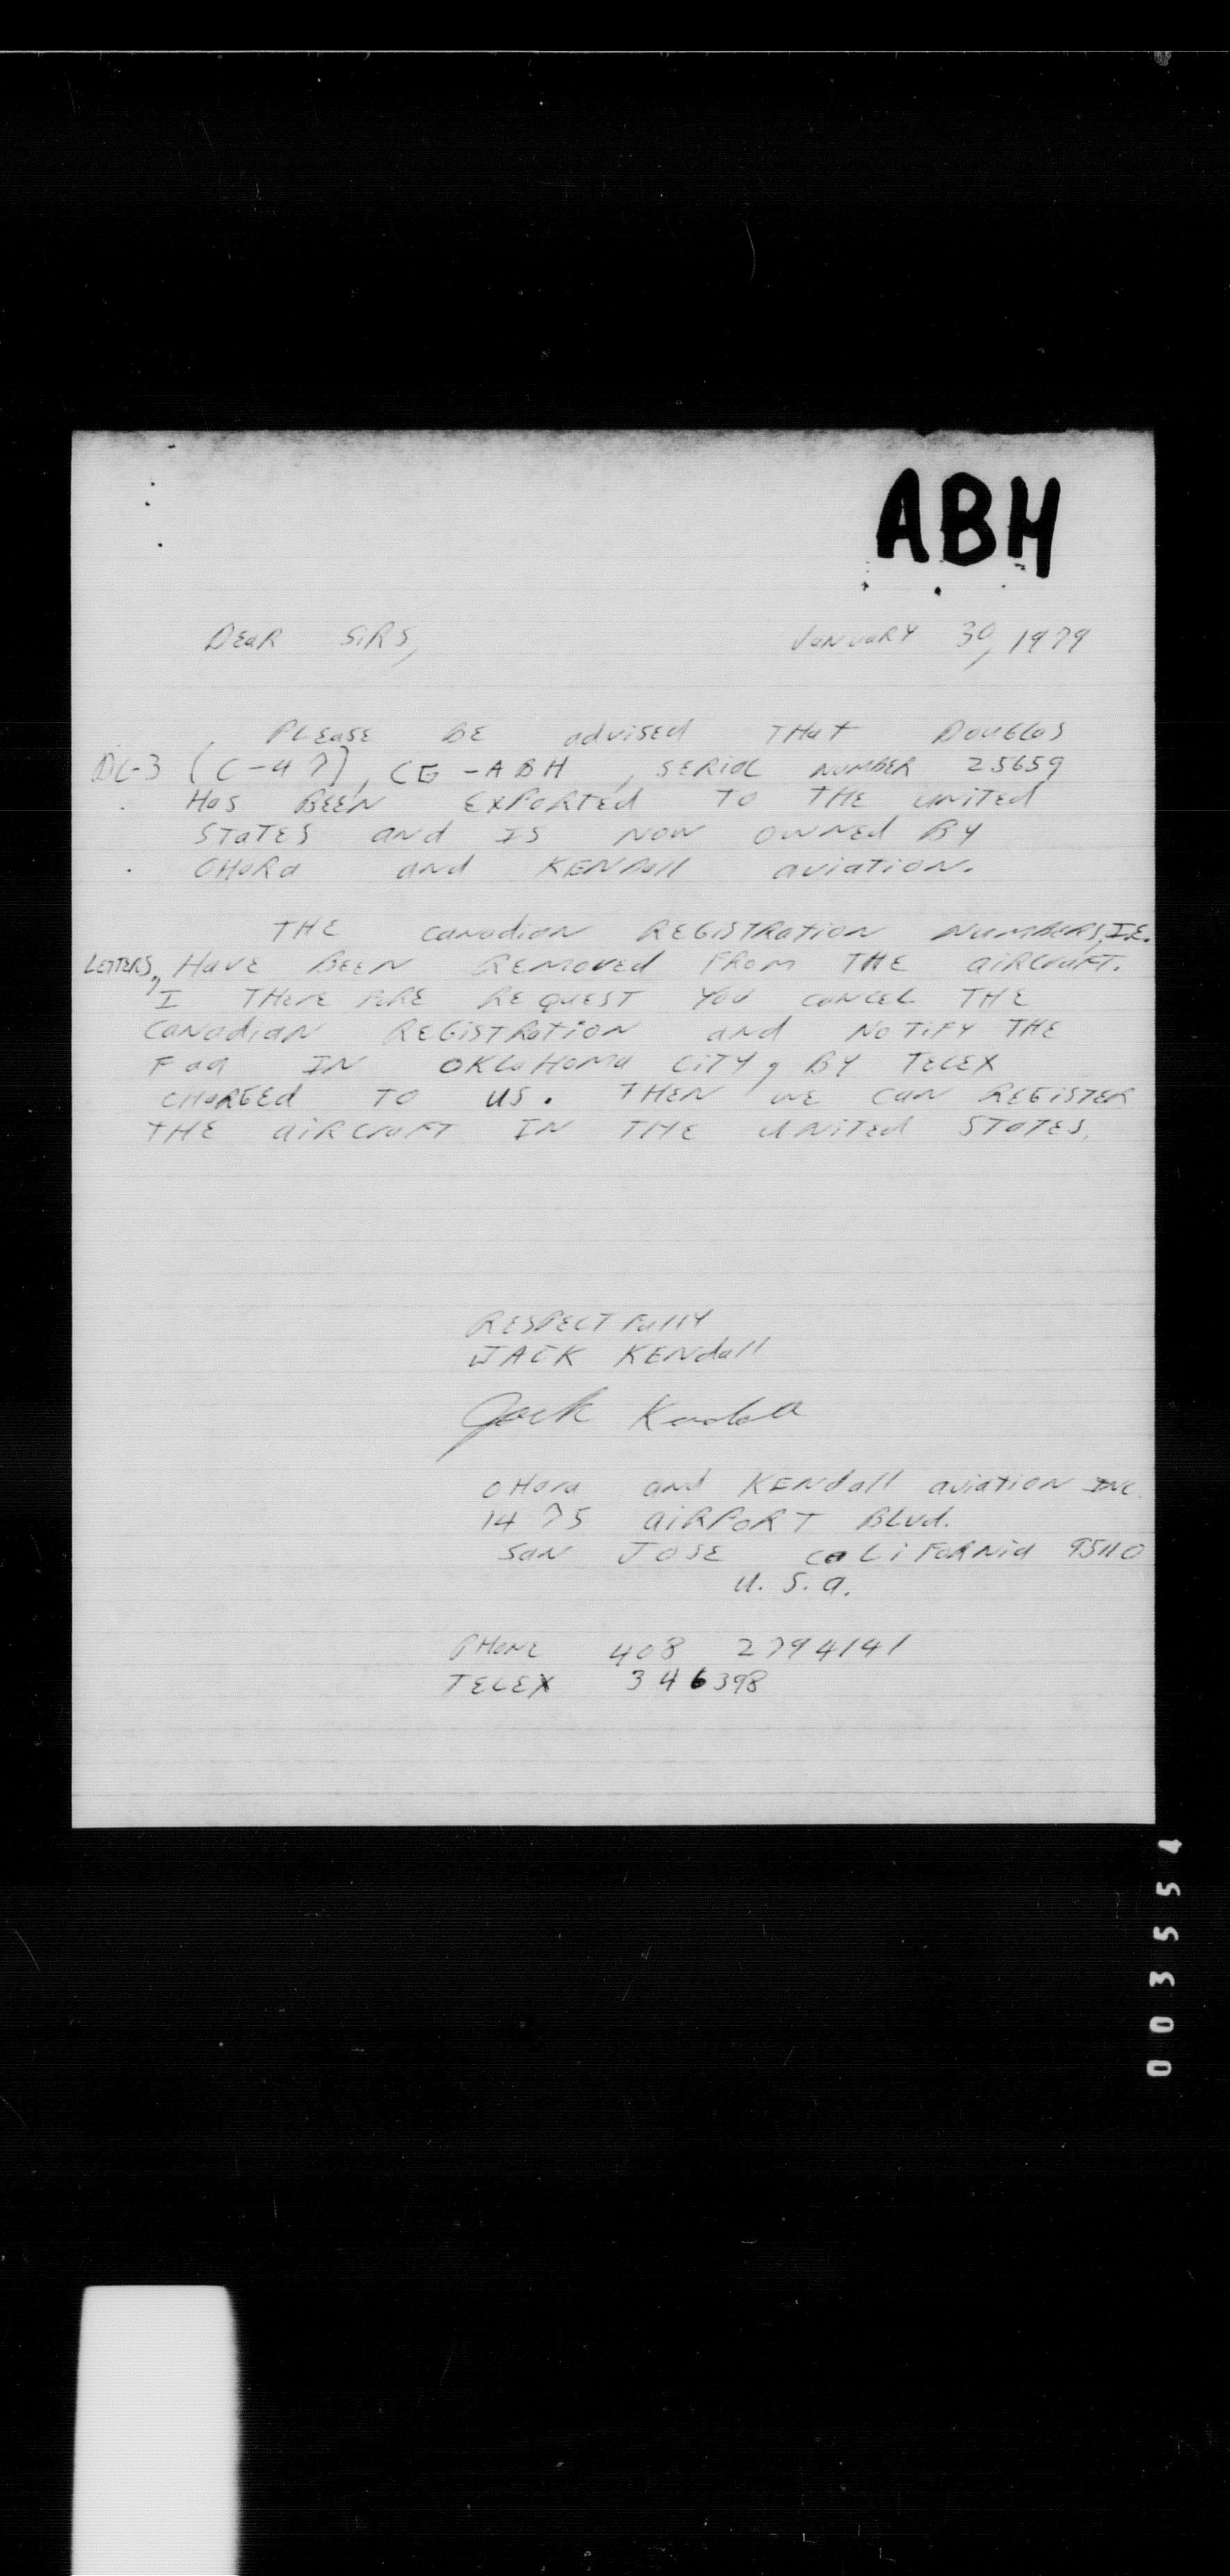 ABH
Dear Sirs, January 30, 1979
Please be advised that Douglas
DC-3 (C-47), CG-ABH, serial number 25659
has been exported to the United
States and is now owned by
OHara and Kendall aviation.
The Canadian registration numbers, I.E.
letters, have been removed from the aircraft.
I therefore request you cancel the
Canadian registration and notify the
Faa in Oklahoma City, by telex
charged to us. Then we can register
the aircraft in the United States.
Respectfully
Jack Kendall
Jack Kendall
OHara and Kendall aviation Inc.
1475 Airport Blvd.
San Jose California 95110
U.S.a.
Phone 408 2794141
Telex 346398
003554